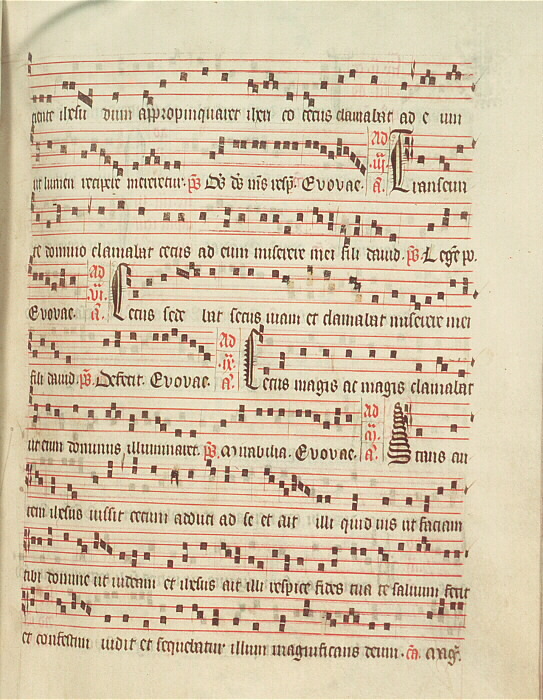 iente ihesu dum appropinquaret iherico cecus clamabat ad eum
ut lumen recipere mereretur. ps Ds ds ms resp. Evovae. ad iii a. Transeun
te domino clamabat cecus ad eum miserere mei fili david. ps Lege po.
Evovae. ad vi a. Cecus sede bat secus viam et clamabat miserere mei
fili david. ps Defecit. Evovae. ad ix a. Cecus magis ac magis clamabat
ut eum dominus illuminaret. ps Mirabilia. Evovae. ad a. Stans au
tem ihesus iussit cecum adduci ad se et ait illi quid vis ut faciam
tibi domine ut videam et ihesus ait illi respice fides tua te salvum fecit
et confestim vidit et sequebatur illum magnificans deum. ca Mag.